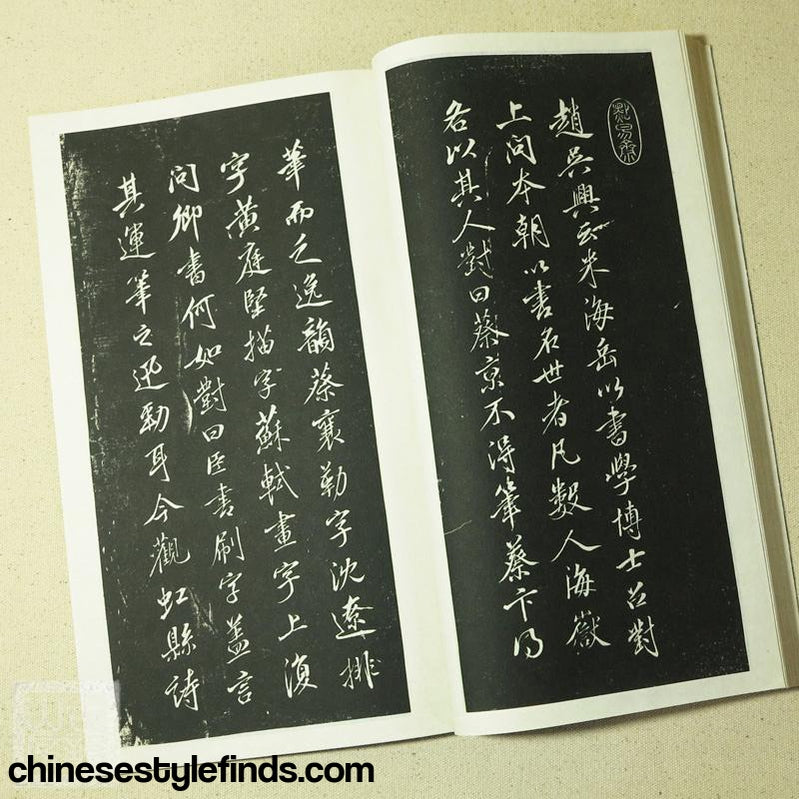 趙吳興云米海岳以書學博士召對
上問本朝以書名世者凡數人海嶽
各以其人對曰蔡京不得筆蔡卞得
筆而乏逸韻蔡襄勒字沈遼排
字黃庭堅描字蘇軾畫字上復
問卿書何如對曰臣書刷字蓋言
其運筆之迅勁耳今觀虹縣詩
chinesestylefinds.com